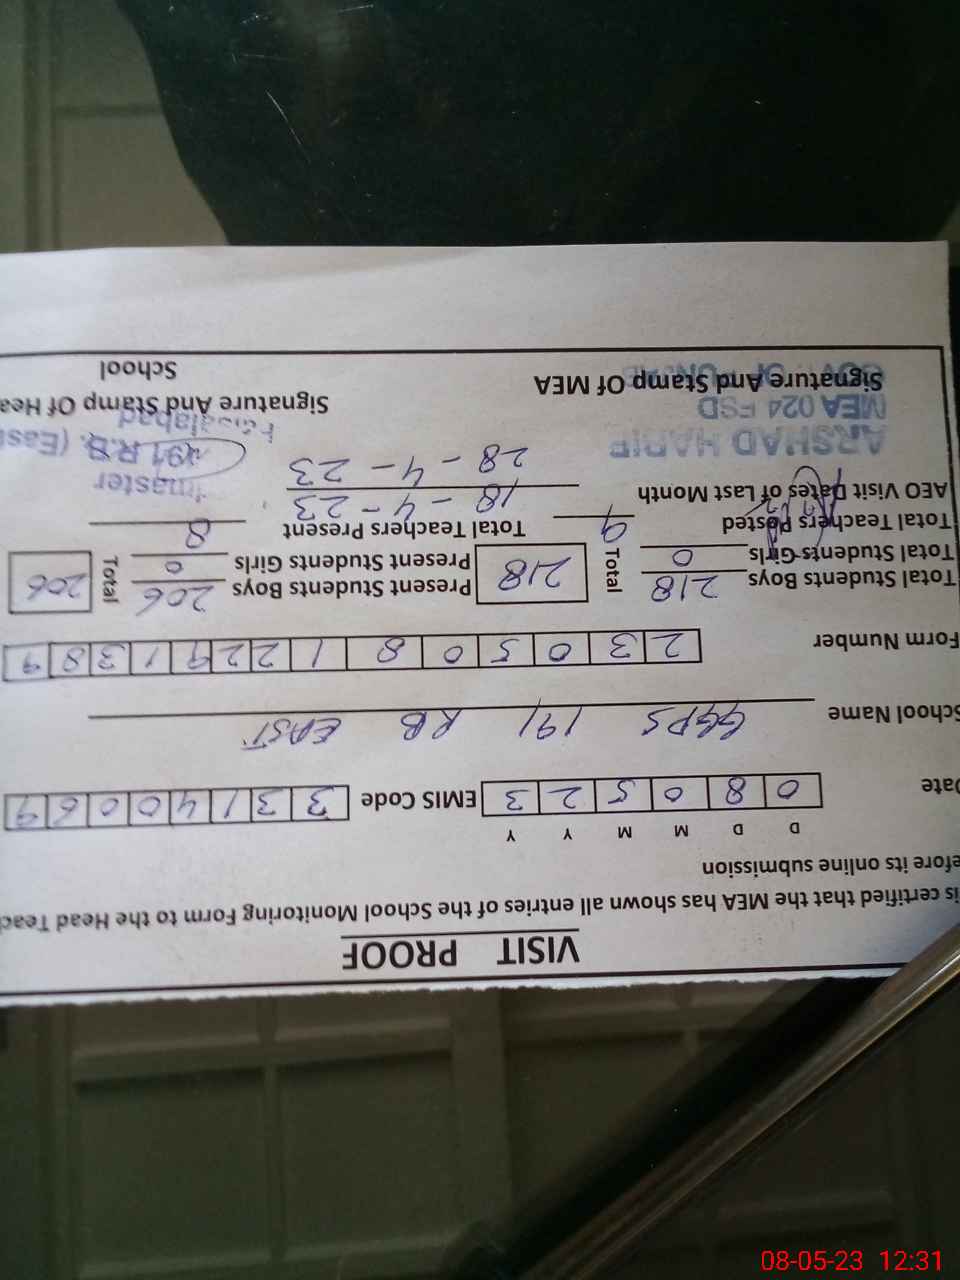 VISIT PROOF
is certified that the MEA has shown all entries of the School Monitoring Form to the Head Teac
efore its online submission
D D M M Y Y
Date 0 8 0 5 2 3 EMIS Code 3 3 1 4 0 0 6 9
School Name GGPS 191 RB EAST
Form Number 2 3 0 5 0 8 1 2 2 9 1 3 8 9
Total Students Boys 218 Total 218 Present Student Boys 206 Total 206
Total Students Girls 0 Present Student Girls 0
Total Teachers Posted 9 Total Teachers Present 8
AEO Visit Dates of Last Month 18-4-23
28-4-23
master
ARSHAD HABIB
191 R.B. (East
MEA 024 FSD
Faisalabad
GOVT. OF PUNJAB
Signature And Stamp Of MEA Signature And Stamp Of Hea
School
08-05-23 12:31